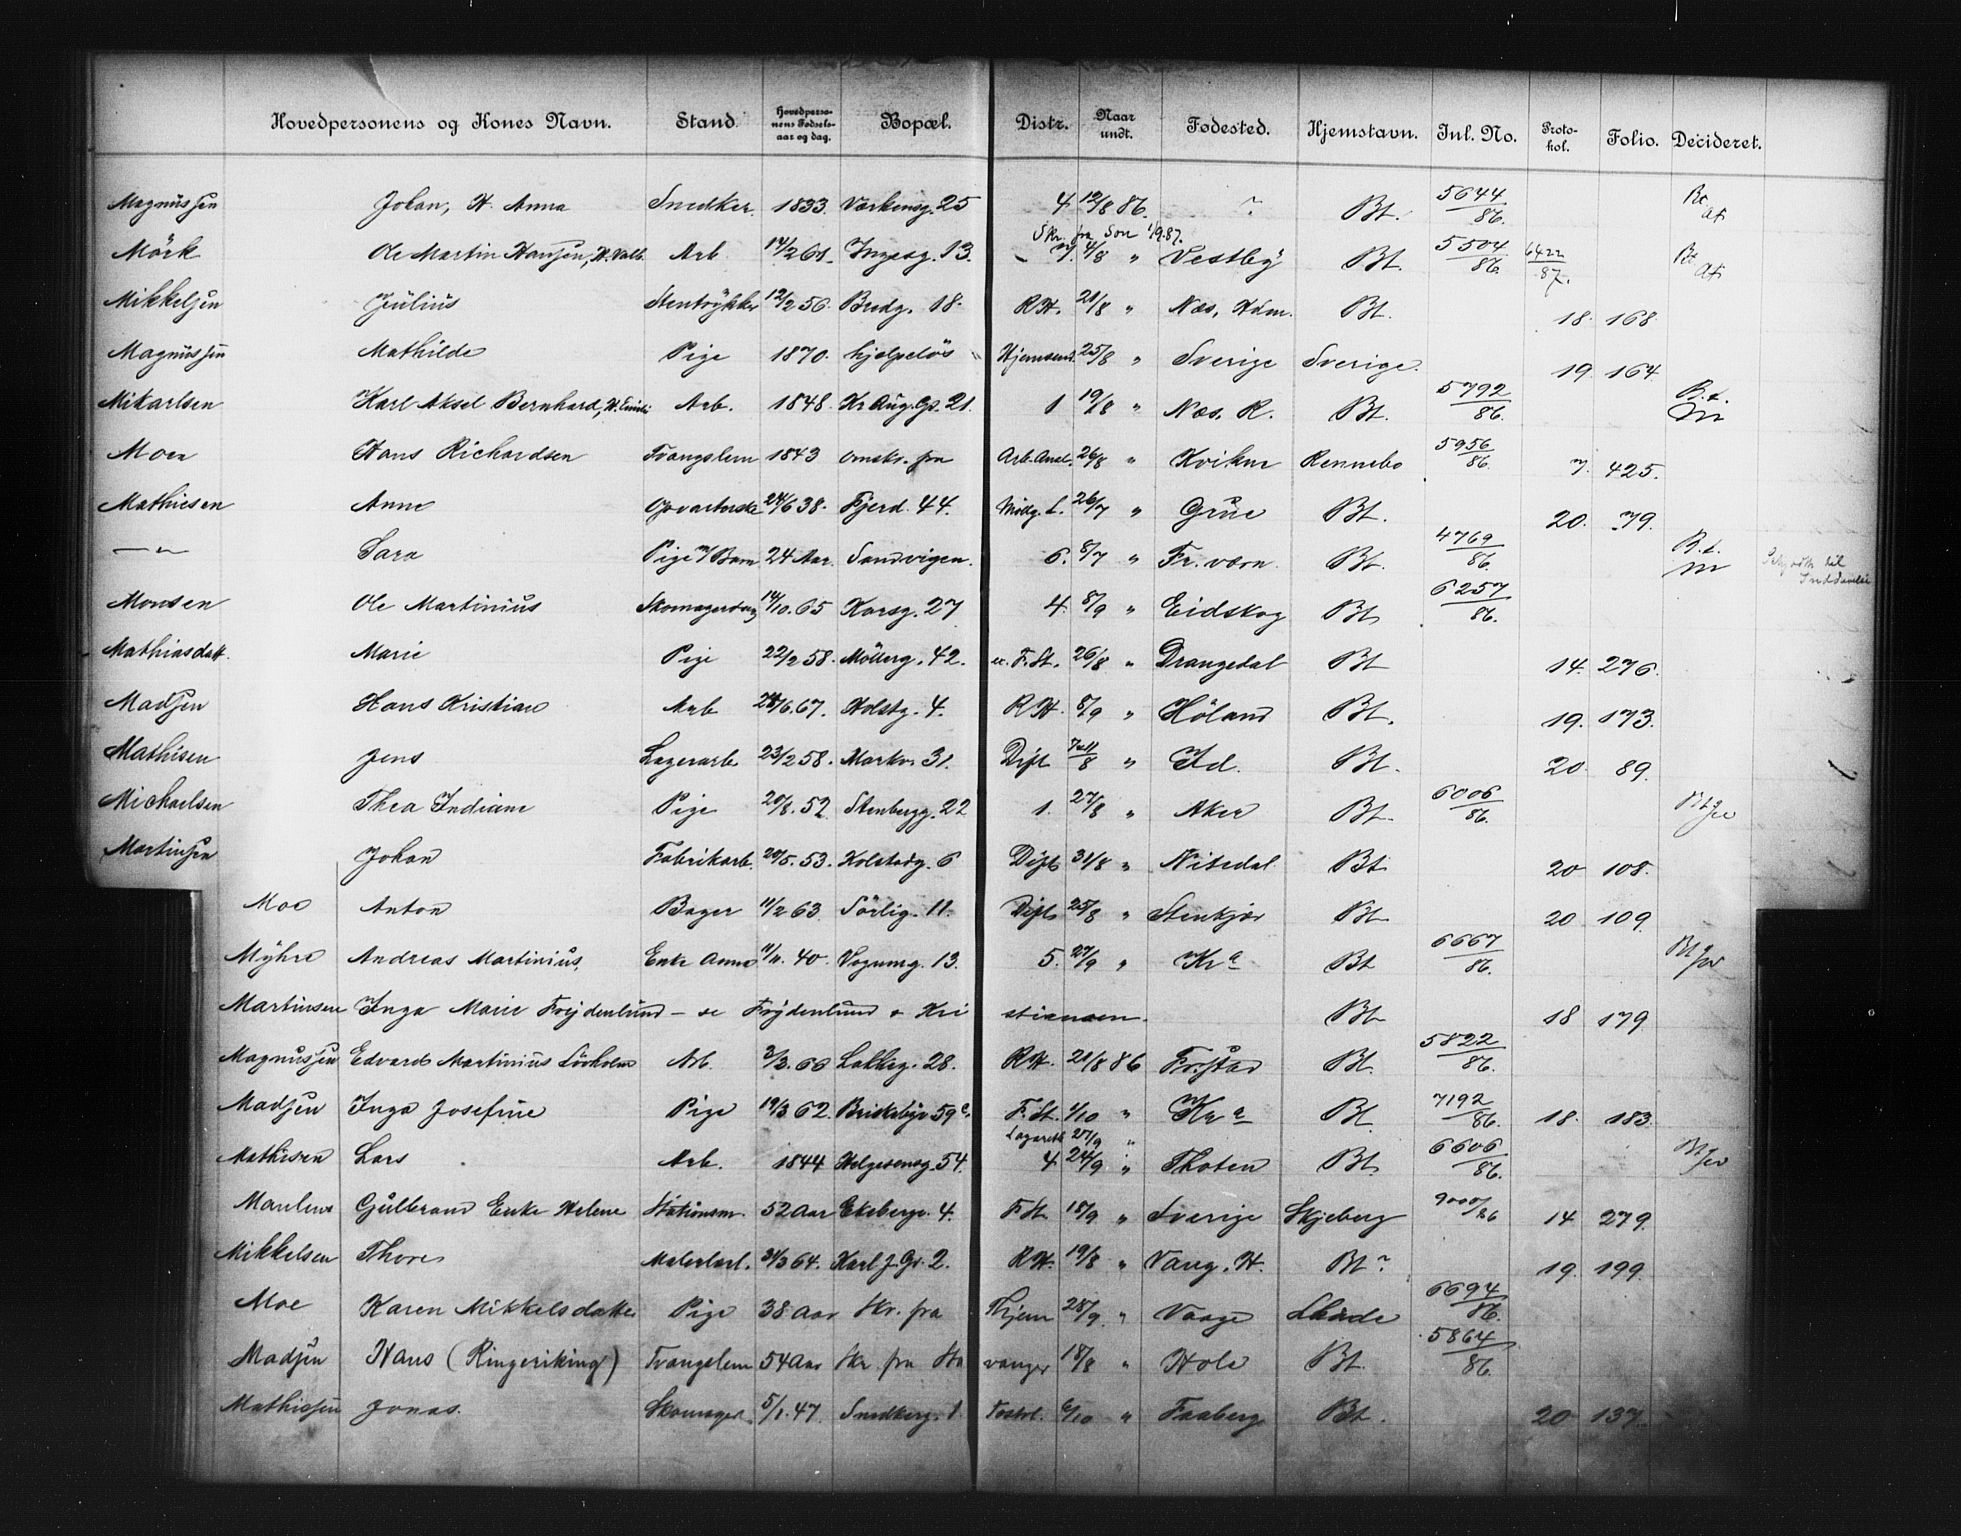 Hovedpersonens og Kones Navn. Stand. Hovedperso-nens Fødsels-aar og dag. Bopæl. Distr. Naar undt. Fødested. Hjemstavn. Inl. No. Proto-kol. Folio. Decideret.
Magnussen Johan, H. Anna Snedker. 1833. Værkensg. 25 4 12/8 86. ? Bt. 5644/86.
Skr. fra Son 1/9.87.
Mörk Ole Martin Hansen, H. Valb. Arb. 14/2 61. Ingesg. 13. 4/8 " Vestby Bt. 5504/86. 6422/87.
Mikkelsen Julius 12/2 56. Bredg. 18. R.H. 21/8 " Næs, Hdm. Bt. 18. 168.
Magnussen Mathilde Pige 1870. hjelpelös Hjemsend. 25/8 " Sverige Sverige. 19. 164.
Mikarlsen Karl Aksel Bernhard, H. Emili Arb. 1848. Kr. Aug. Gs. 21. 1 19/8 " Næs. R. Bt. 5792/86. B.t.
Moen Hans Richardsen Tvangslem 1843 omskr. fra Arb. Anst. 26/8 " Kvikne Rennebo 5956/86. 7. 425.
Mathiesen Anne Opvarterske 24/6 38. Fjerd. 44. Möllg. L. 26/7 " Grue Bt. 20. 79.
— " — Sara Pige m/ Barn 24 Aar. Sandvigen. 6. 8/7 " Fr. værn Bt. 4769/86. B.t.
Monsen Ole Martinius 14/10. 65 Korsg. 27 4. 8/9 " Eidskog Bt. 6257/86.
Mathiasdatt. Marie Pige 22/2 58. Möllerg. 42. F. St. 26/8 " Drangedal Bt 14. 276.
Madsen Hans Kristian Arb 24/6. 67. Holstg. 4. R.H. 8/9 " Höland Bt. 19. 173.
Mathisen Jens Lagerarb. 23/2 58. Markv. 31. Dift /8 " Id. Bt. 20. 89.
Michaelsen Thea Indiane Pige 20/8. 52. Stenbergg. 22 1. 27/8 " Aker Bt. 6006/86.
Martinsen Johan Fabrikarb. 20/5. 53. Holstadg. 6 Dift 31/8 " Nitedal Bt 20 108.
Moe Anton Bager 11/2 63. Sörlig. 11. Dift 25/8 " Stenkjær Bt. 20 109.
Myhre Andreas Martinius, Enke Anna 11/11. 40. Vognmg. 13. 5. 27/9 " Kra Bt 6667/86.
Martinsen Inga Marie Frydenlund — se Frydenlund & Kri stiansen. Bt 18 179
Magnussen Edvard Martinius Lövholm Arb. 3/3. 66 Lakkeg. 28. R.H. 21/8 86 Bt. 5822/86.
Madsen Inga Josefine Pige 19/3 62. Briskebyv 59 a. F. St. 1/10 " Kra Bt 7192/86. 18. 183.
Lazareth 27/9 "
Mathisen Lars Arb. 1844 Helgesensg. 54. 4 24/9 " Thoten Bt. 6606/86.
Gulbrand Enke Helene Stationsm. 52 Aar Ekebergv. 4. F. St. 18/9 " Sverige Skjeberg 9000/86 14 279.
Mikkelsen Thore Malerlærl. 31/3 64. Karl J. Gr. 2. R.H. 19/8 " Vang. H. Bt ? 19. 199.
Moe Karen Mikkelsdatter Pige 38 Aar Skr. fra Hjem 28/9. " Vaage 6694/86.
Madsen Hans (Ringeriking) Tvangslem 54 Aar Skr. fra Sta vanger 18/8 " Hole Bt. 5864/86.
Mathissen Jonas. Skomager. 5/1. 47. Snedkerg. 1. 6/10 " Faaberg Bt. 20 137.